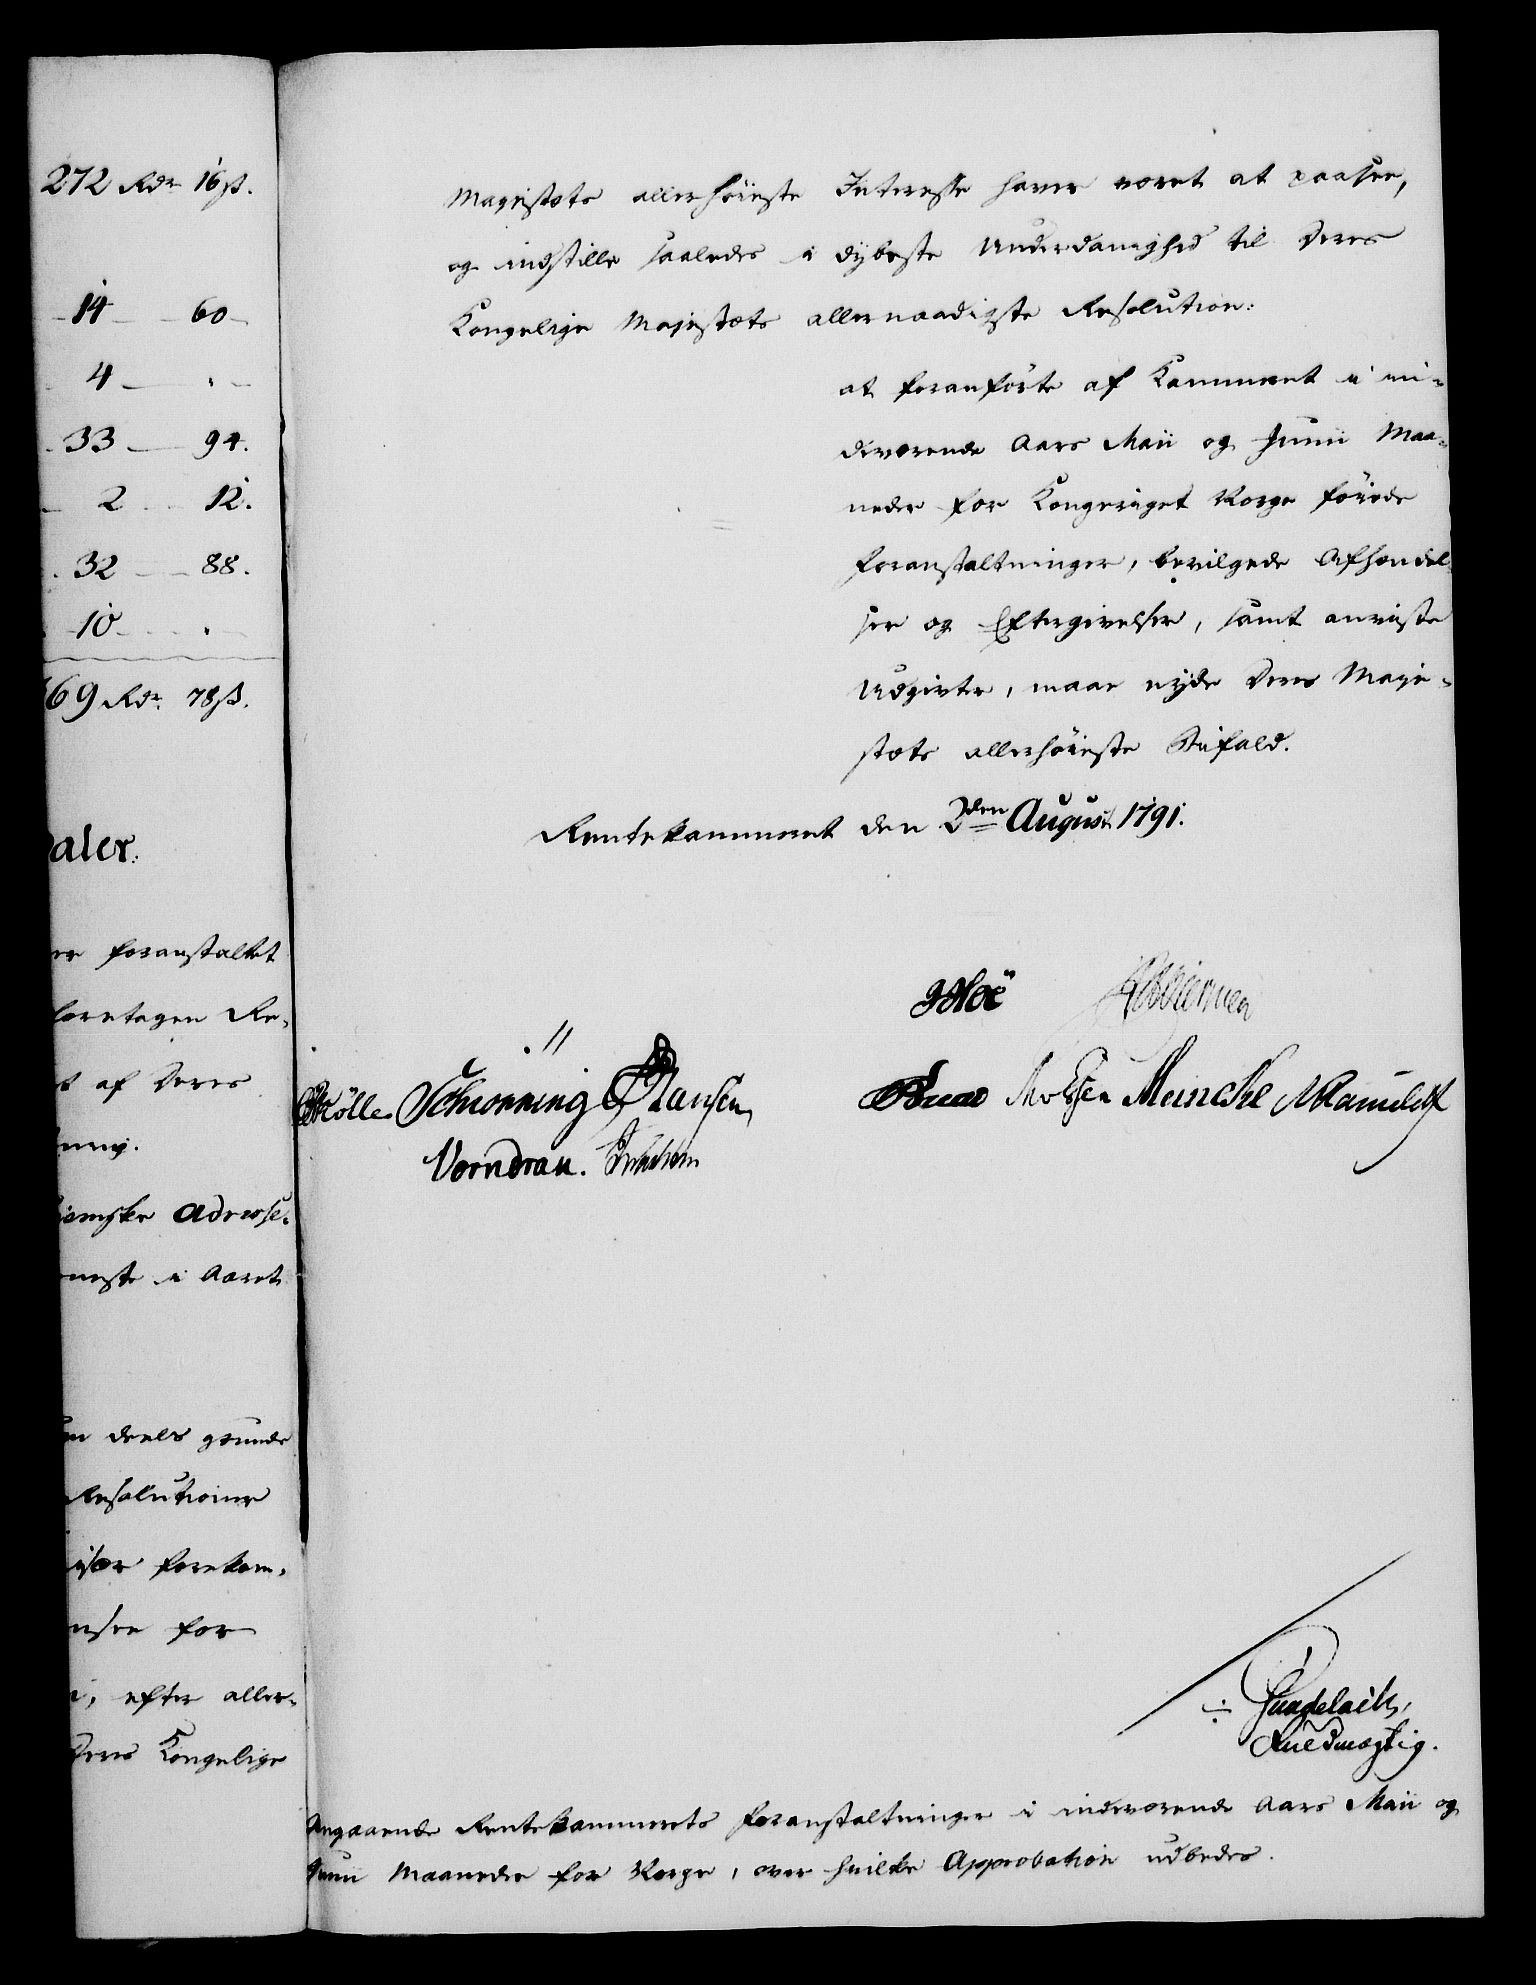 272 Rdr 16 ß.
14 — 60
4 — "
33 — 94.
2 — 12.
32 — 88.
10 — "
69 Rdr 78 ß.
aler.
foranstaltet
foretagen Re-
af Deres
Adresse-
neste i Aaret
deels grunde
Resolutioner
forekom-
for
efter aller-
Deres Kongelige
Majestæts allerhöieste Interesse haver været at paasee,
og indstille saaledes i dybeste Underdanighed til Deres
Kongelige Majestæts allernaadigste Resolution:
at foranförte af Kammeret i in-
deværende Aars Maii og Junii Maa-
neder for Kongeriget Norge föiede
Foranstaltninger, bevilgede Afhændel-
ser og Eftergivelser, samt anviste
Udgivter, maae nyde Deres Maje-
stæts allerhöieste Bifald.
Rentekammeret den 2den August 1791.
Möller Schionning Hansen
Meincke
Vorndran.
Fuldmægtig.
Angaaende Rentekammerets Foranstaltninger i indeværende Aars Maii og
Junii Maaneder for Norge, over hvilke Approbation udbedes.